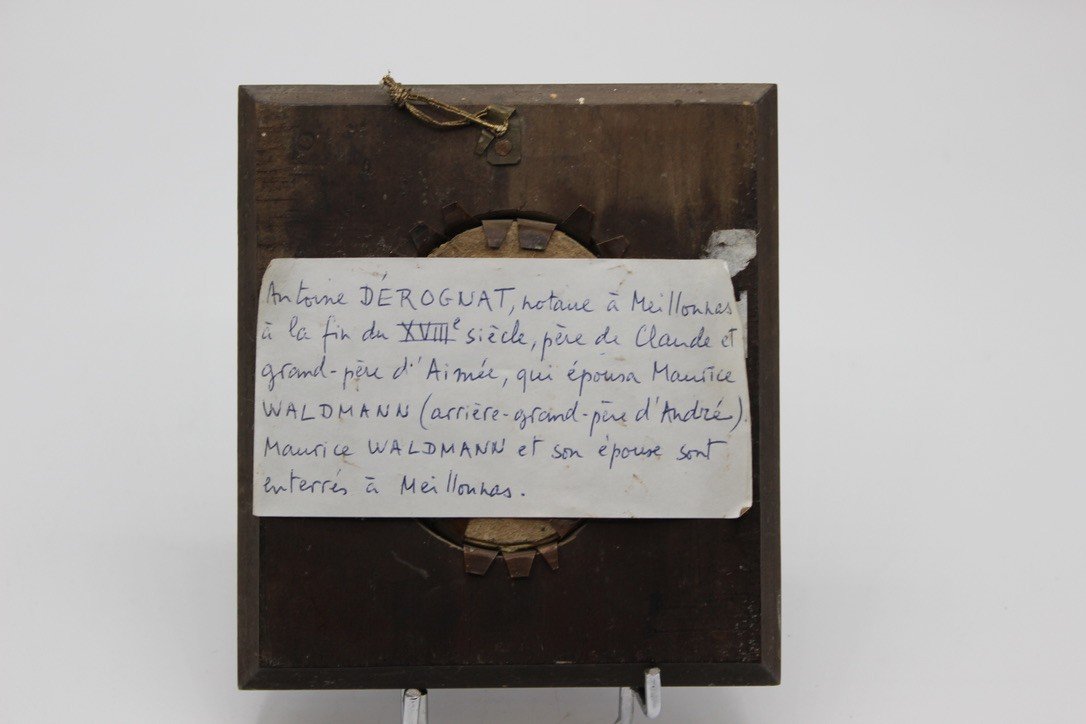 Antoine DÉROGNAT, notaire à Meillonnas
à la fin du XVIIIe siècle, père de Claude et
grand-père d'Aimée, qui épousa Maurice
WALDMANN (arrière-grand-père d'André).
Maurice WALDMANN et son épouse sont
enterrés à Meillonnas.